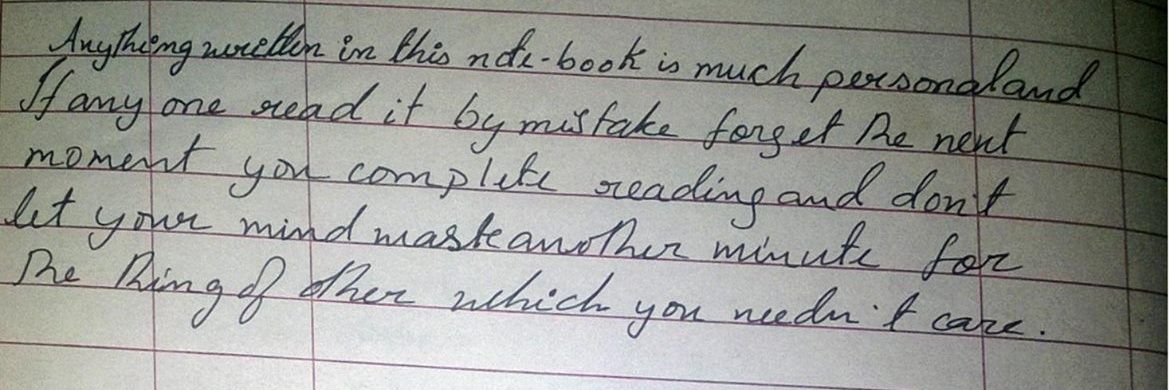 Anything written in this note-book is much personal and
If any one read it by mistake forget the next
moment you complete reading and don't
let your mind waste another minute for
the thing of other which you needn't care.